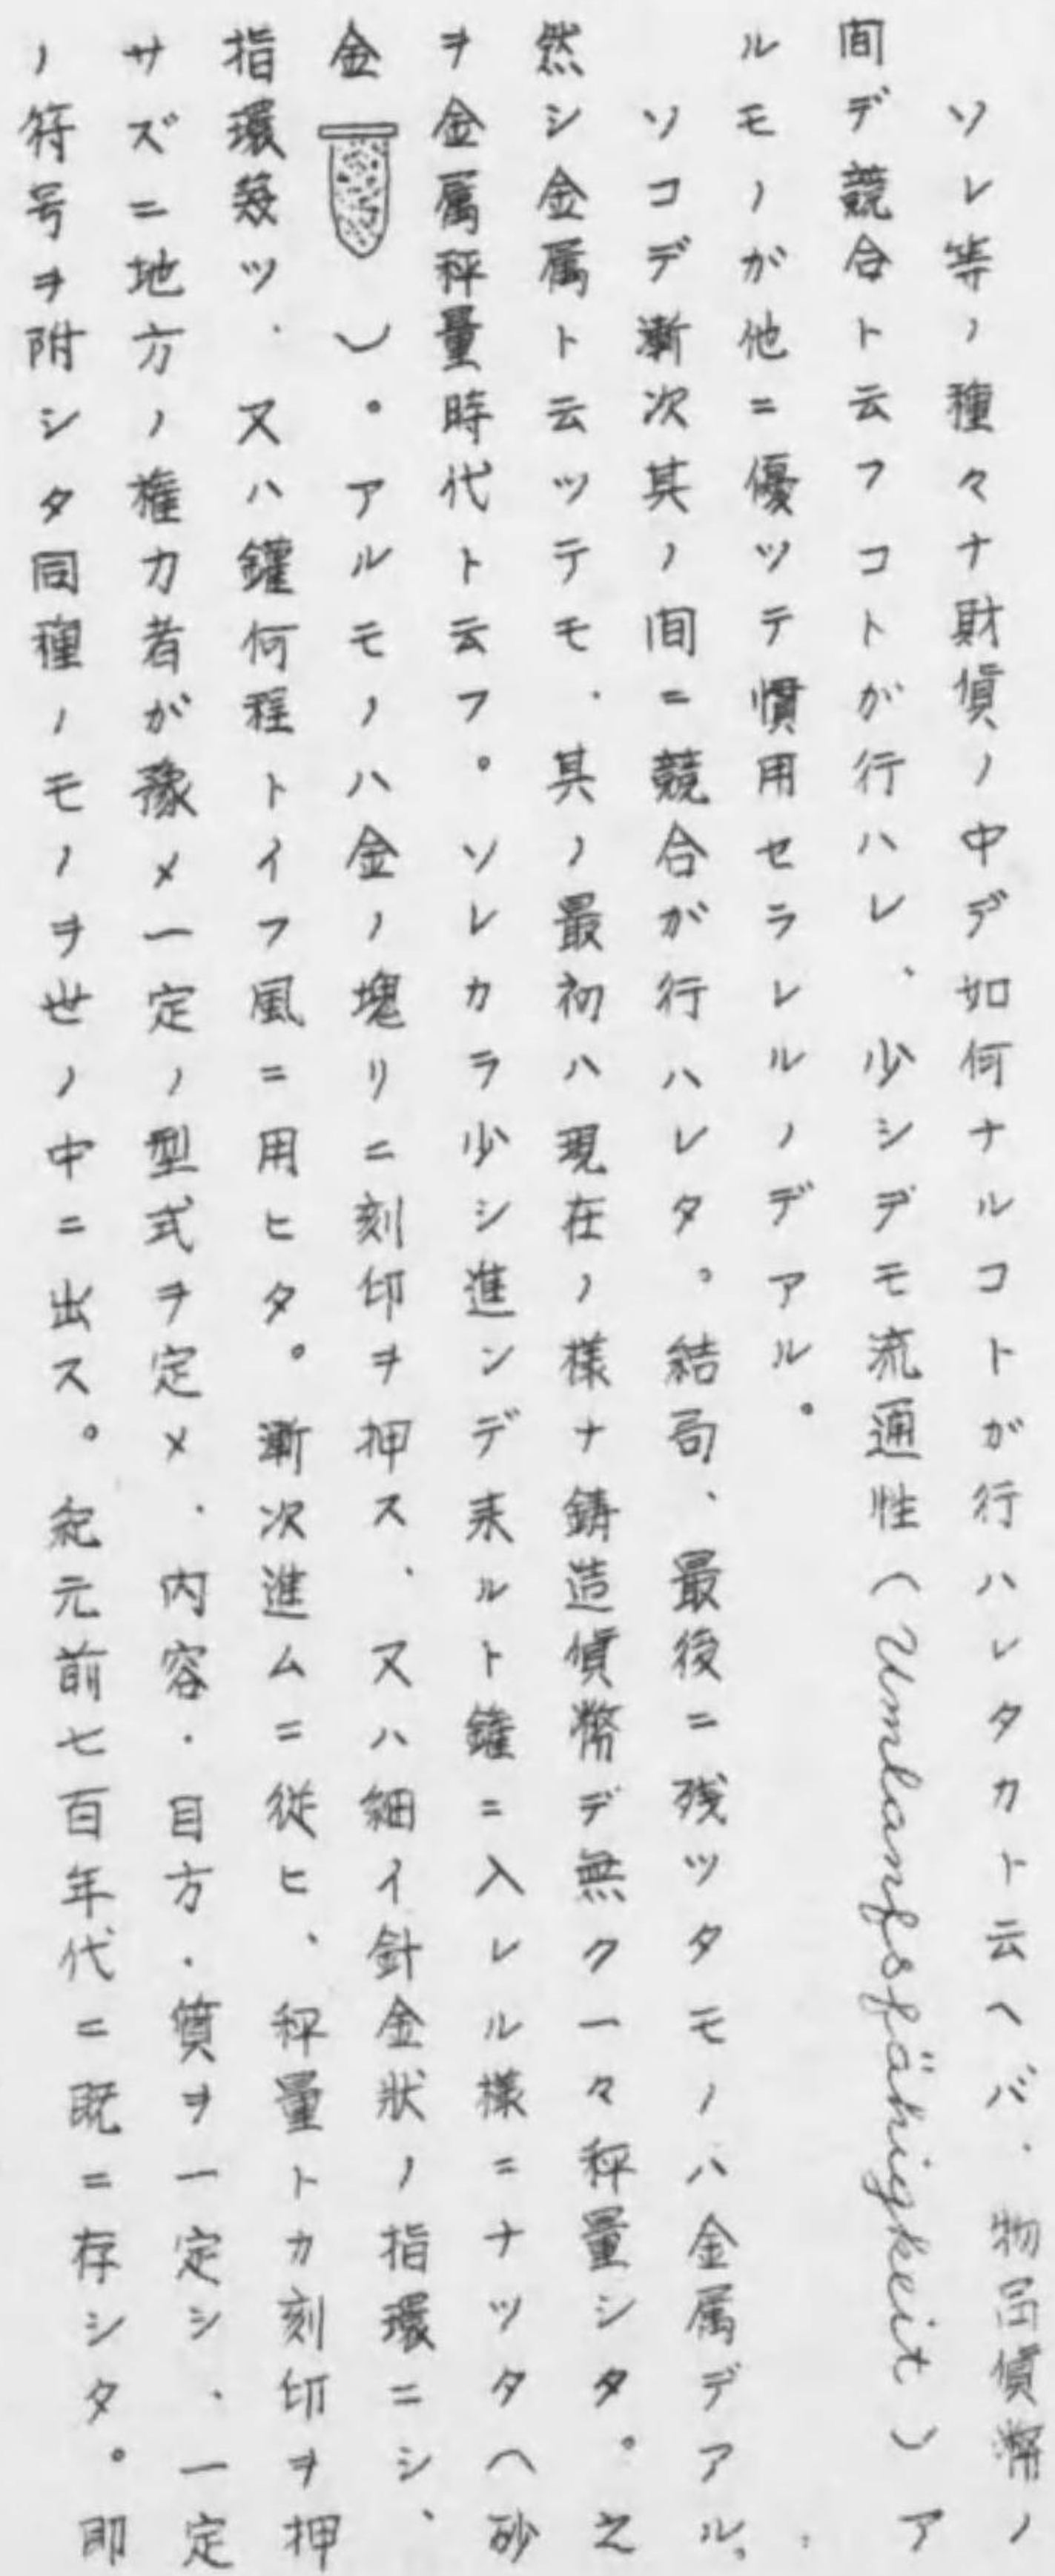 ソレ等ノ種々ナ財貨ノ中デ如何ナルコトガ行ハレタカト云ヘバ、物品貨幣ノ
間デ競合ト云フコトガ行ハレ、少シデモ流通性(Umlaufsfähigkeit)ア
ルモノガ他ニ優ッテ慣用セラレルノデアル。
ソコデ漸次其ノ間ニ競合ガ行ハレタ。結局、最後ニ残ッタモノハ金属デアル。
然シ金属ト云ッテモ、其ノ最初ハ現在ノ様ナ鋳造貨幣デ無ク一々秤量シタ。之
ヲ金属秤量時代ト云フ。ソレカラ少シ進ンデ来ルト罐ニ入レル様ニナッタ(砂
金)。アルモノハ金ノ塊リニ刻印ヲ押ス、又ハ細イ針金状ノ指環ニシ、
指環幾ツ、又ハ罐何程トイフ風ニ用ヒタ。漸次進ムニ従ヒ、秤量トカ刻印ヲ押
サズニ地方ノ権力者ガ豫メ一定ノ型式ヲ定メ、内容・目方・質ヲ一定シ、一定
ノ符号ヲ附シタ同種ノモノヲ世ノ中ニ出ス。紀元前七百年代ニ既ニ存シタ。即